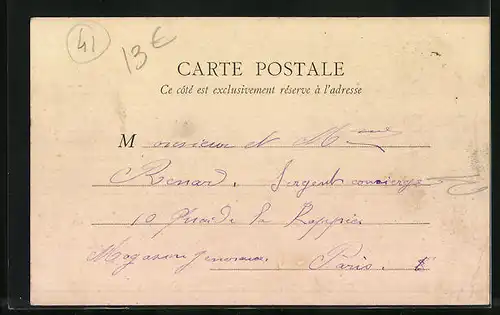 41
13 €
CARTE POSTALE
Ce côté est exclusivement réservé à l'adresse
Monsieur et Mme
Renard, Sergent concierge
10 de la Rappée
Magasins Généraux Paris.